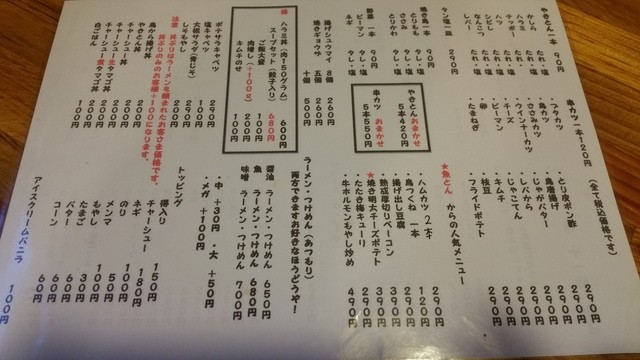 やきとん 一本 90円
かしら たれ・塩
ハラミ たれ・塩
テッポー たれ・塩
ハツ たれ・塩
シビレ たれ・塩
たんこつ たれ・塩
レバー たれ・塩
タン塩 一皿 290円
焼き鳥 一本 90円
もも タレ・塩
ささみ タレ・塩
とりかわ タレ・塩
野菜 一本 90円
ピーマン タレ・塩
ネギ タレ・塩
焼ギョウザ 五個 260円
揚げシュウマイ 8個 260円
ハラミ丼(肉150グラム) 600円
スープセット(餃子入り) 680円
ご飯大盛 100円
肉増し(+100g) 200円
キムチのせ 100円
ポテサラキャベツ 290円
塩キャベツ 190円
大根サラダ(青じそ) 290円
しそもやし 200円
注意 丼ぶりはラーメンを頼まれたお客さま価格です。
丼ぶりのみのお客様+100になります。
鳥から揚げ丼 200円
やきとん丼 200円
チャーシュー丼 200円
チャーシュー生タマゴ丼 200円
チャーシュー煮タマゴ丼 200円
白ごはん 100円
串カツ一本120円 (全て税込価格です)
・ブタカツ
・鳥カツ
・ささみカツ
・ウインナーカツ
・チーズ
・ピーマン
・卵
・たまねぎ
・とり皮ポン酢 290円
・鳥唐揚げ 290円
・じゃがバター 290円
・しバから 290円
・じゃこてん 290円
・キムチ 290円
・枝豆 290円
・フライドポテト 290円
やきとんおまかせ
5本420円
串カツ おまかせ
5本550円
★魚とん からの人気メニュー
・ハムカツ 2本 290円
・鳥つくね 一本 120円
・揚げ出し豆腐 290円
・熟成厚切りベーコン 390円
★焼き明太チーズポテト 390円
・たたき梅キューリ 390円
・牛ホルモンもやし炒め 490円
ラーメン・つけめん(あつもり)
両方できますお好きなほうどうぞー!
醤油 ラーメン・つけめん 650円
魚 ラーメン・つけめん 680円
味噌 ラーメン・つけめん 700円
・中 +30円 ・大 +50円
・メガ +100円
トッピング
得入り 150円
チャーシュー 180円
ネギ 100円
のり 100円
メンマ 50円
もやし 100円
たまご 30円
バター 60円
コーン 60円
アイスクリームバニラ 100円